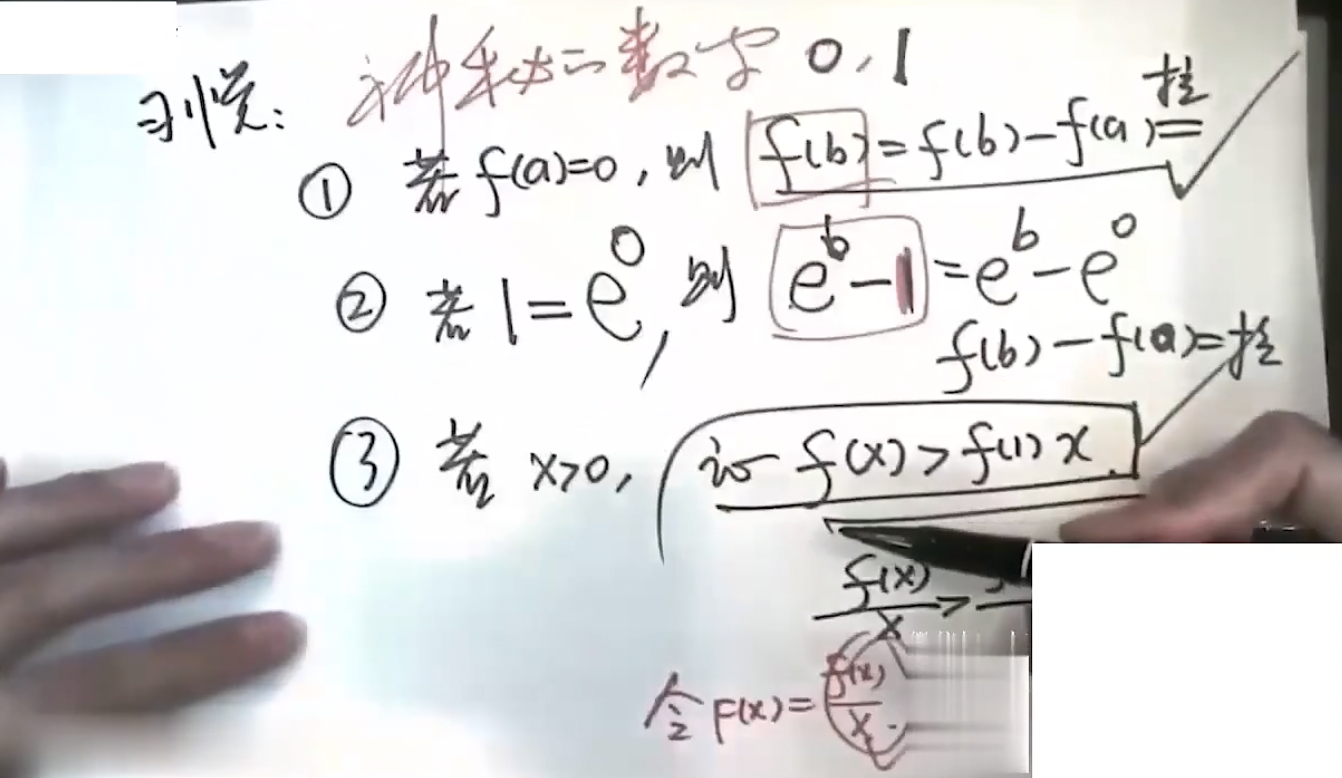 习惯: 神秘二数字 0, 1
① 若 f(a)=0, 则 f(b) = f(b) - f(a) 拉=
② 若 1 = e⁰, 则 eᵇ - 1 = eᵇ - e⁰
f(b) - f(a) = 拉
③ 若 x>0, 证 f(x) > f(1) x
f(x)/x >
令 F(x) = f(x)/x